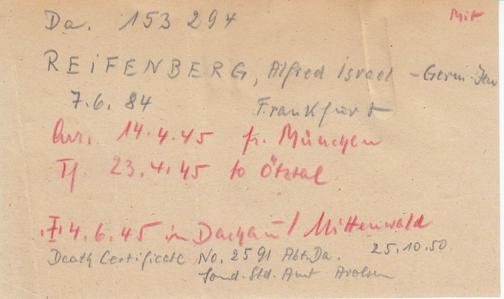 Mit
Da. 153 294
REIFENBERG, Alfred Israel - Germ. Jew
7.6. 84 Frankfurt
Arr. 14.4.45 fr. München
Tf 23.4.45 to Ötztal
4.6.45 in Dachau / Mittenwald
Death Certificate No. 2591 Abt. Da. 25.10.50
Sond. Std. Amt Arolsen